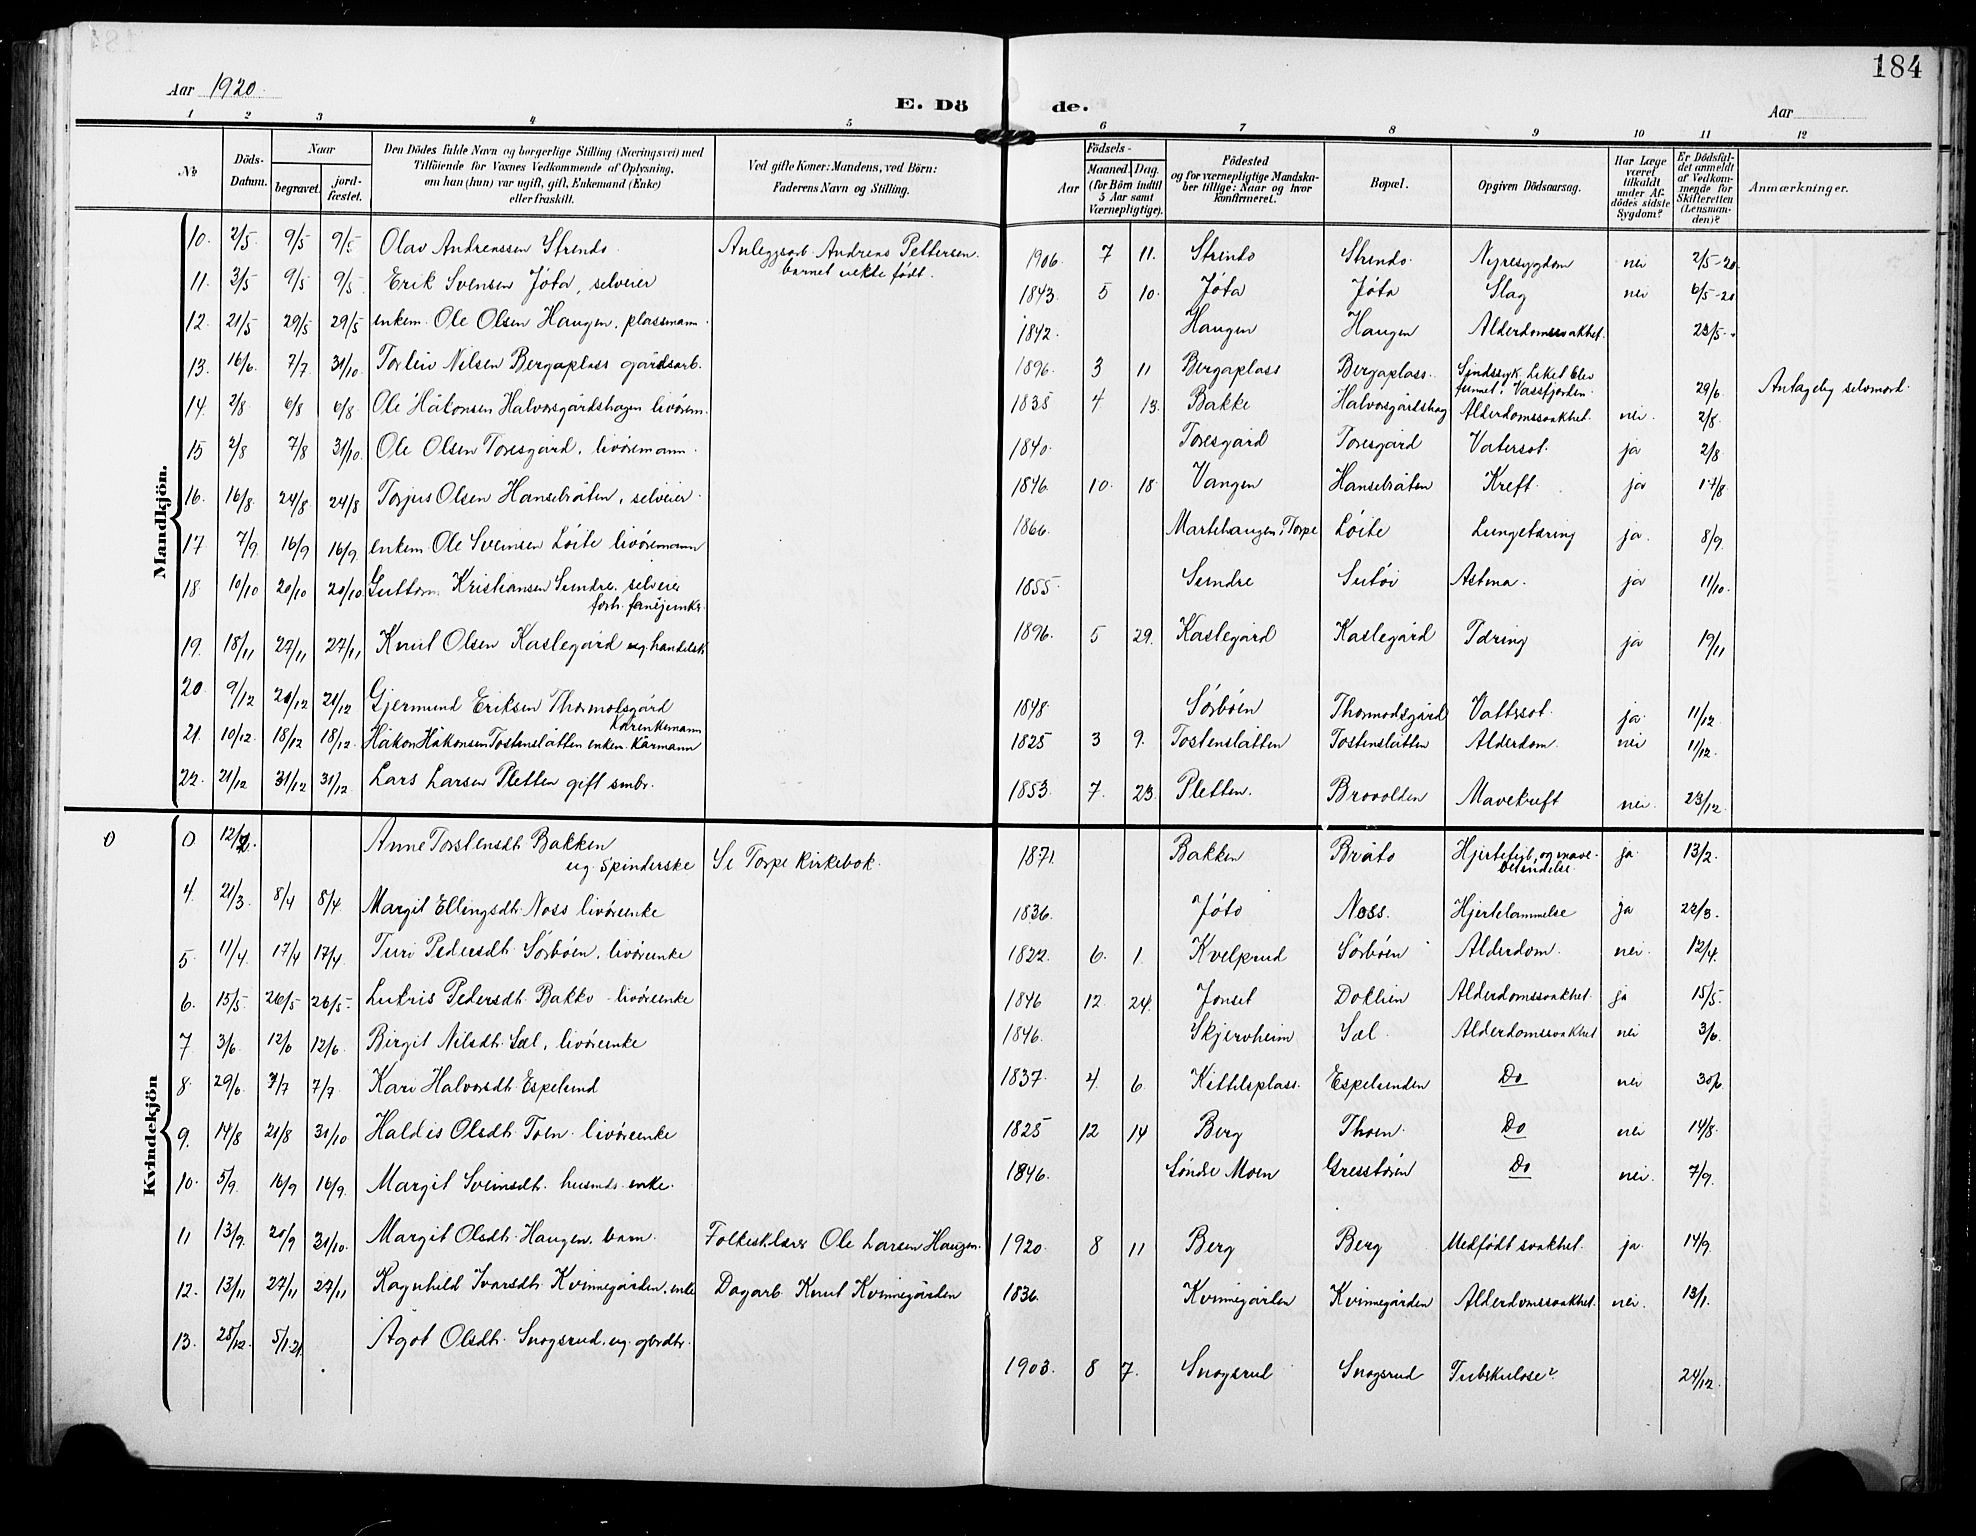 184
Aar 1920.
E. Dö de.
Aar
1 2 3 4 5 6 7 8 9 10 11 12
No
Döds-Datum.
Naar
begravet.
jord-fæstet.
Den Dödes fulde Navn og borgerlige Stilling (Næringsvei) med
Tilföiende for Voxnes Vedkommende af Oplysning,
om han (hun) var ugift, gift, Enkemand (Enke)
eller fraskilt.
Ved gifte Koner: Mandens, ved Börn:
Faderens Navn og Stilling.
Födsels-
Aar
Maaned. Dag.
(for Börn indtil
5 Aar samt
Værnepligtige).
Födested
og for værnepligtige Mandska-
ber tillige: Naar og hvor
konfirmeret.
Bopæl.
Opgiven Dödsaarsag.
Har Læge
været
tilkaldt
under Af-
dödes sidste
Sygdom?
Er Dödsfal-
det anmeldt
af Vedkom-
mende for
Skifteretten
(Lensman-
den)?
Anmærkninger.
Mandkjön.
10. 2/5. 9/5 9/5 Olav Andreassen Strendo. Anleggsarb. Andreas Pettersen. 1906 7 11. Strendo Strendo. Nyresygdom nei 2/5-20
barnet ekte født.
11. 3/5 9/5 9/5 Erik Svensen Jøta, selveier 1843. 5 10. Jøta Jøta Slag nei 6/5-20
12. 21/5 29/5 29/5 enkem. Ole Olsen Haugen, plassmann. 1842. Haugen Haugen Alderdomssvakhet. 23/5
13. 16/6 7/7 31/10. Torleiv Nilsen Bergaplass gårdsarb. 1896. 3 11 Bergaplass Bergaplass. Sindssyk. Liket blev
funnet i Vassfjorden. 29/6 Antagelig selvmord.
14. 2/8 6/8 6/8. Ole Håkonsen Halvorsgårdshagen livørem. 1835 4 13. Bakke Halvorsgårdshag Alderdomssvakhet. nei. 2/8.
15 2/8 7/8 31/10. Ole Olsen Toresgård, livøremann. 1840. Toresgård Toresgård Vatersot. ja 2/8
16. 16/8. 24/8 24/8 Torjus Olsen Hansebråten, selveier. 1846. 10. 18. Vangen Hansebråten Kreft. ja 17/8
17 7/9 16/9 16/9. enkem. Ole Sveinsen Løite livøremann 1866 Martehaugen, Torpe Løite Lungetæring ja. 8/9.
18. 10/10 20/10 20/10 Guttorm Kristiansen Sundre, selveier 1855. Sundre Sutøi Astma. ja 11/10.
forh. fanejunker.
19. 18/11 27/11 27/11 Knut Olsen Kaslegård ug. handelsb. 1896. 5 29. Kaslegård Kaslegård Tæring ja 19/11
20. 9/12 20/12 21/12 Gjermund Eriksen Thormodsgård 1848. Sørbøen Thormodsgård Vattersot. ja. 11/12.
Kårenkemann
21. 10/12. 18/12 18/12. Håkon Håkonsen Tostensløtten enkem. Kårmann 1825 3 9. Tostenslåtten Tostenslåtten Alderdom. nei 11/12.
22. 21/12 31/12 31/12. Lars Larsen Pletten gift smbr. 1853. 7. 23. Pletten. Brovolden Mavekreft nei. 23/12.
Kvindekjön
0 0 12/2. Anne Torstensdt. Bakken Se Torpe Kirkebok. 1871. Bakken Bråto Hjertefejl, og mave- ja. 13/2.
ug. spinderske betændelse.
4. 21/3. 8/4 8/4. Margit Ellingsdt. Noss livøreenke 1836. Jøto Noss. Hjertelammelse ja 22/3.
5. 11/4. 17/4 17/4. Turi Pedersdt. Sørbøen, livøreenke 1822. 6. 1. Kvelprud Sørbøen Alderdom. nei. 12/4.
6. 15/5. 26/5 26/5- Lukris Pedersdt. Bakko - livøreenke 1846 12. 24. Jonset Doklien Alderdomssvakhet. ja 15/5.
7 3/6. 12/6 12/6. Birgit Nilsdt. Sæl, livøreenke 1846. Skjervheim Sæl. Alderdomssvakhet nei 3/6.
8. 29/6 7/7 7/7. Kari Halvorsdt. Espelund 1837. 4. 6. Kittilsplass. Espelunden Do nei 30/6.
9. 14/8 21/8 31/10 Haldis Olsdt. Toen. livøreenke 1825 12 14 Berg Thoen. Do nei 14/8.
10. 5/9. 16/9 16/9. Margit Sveinsdt. husmds. enke. 1846. Søndre Moen Gresstøen Do nei. 7/9.
11 13/9. 20/9 31/10. Margit Olsdt. Haugen. barn. Folkesk.lærer Ole Larsen Haugen. 1920. 8 11 Berg Berg Medfødt svakhet. ja. 14/9.
12. 13/11 27/11 27/11 Ragnhild Ivarsdt. Kvinnegården, enke Dagarb. Knut Kvinnegården 1836. Kvinnegården Kvinnegården Alderdomssvakhet. nei. 13/1.
13. 25/12. 5/1.21. Agot Olsdt. Snogsrud, ug. grdtr. 1903. 8 7. Snogsrud Snogsrud Tuberkulose? 24/12.